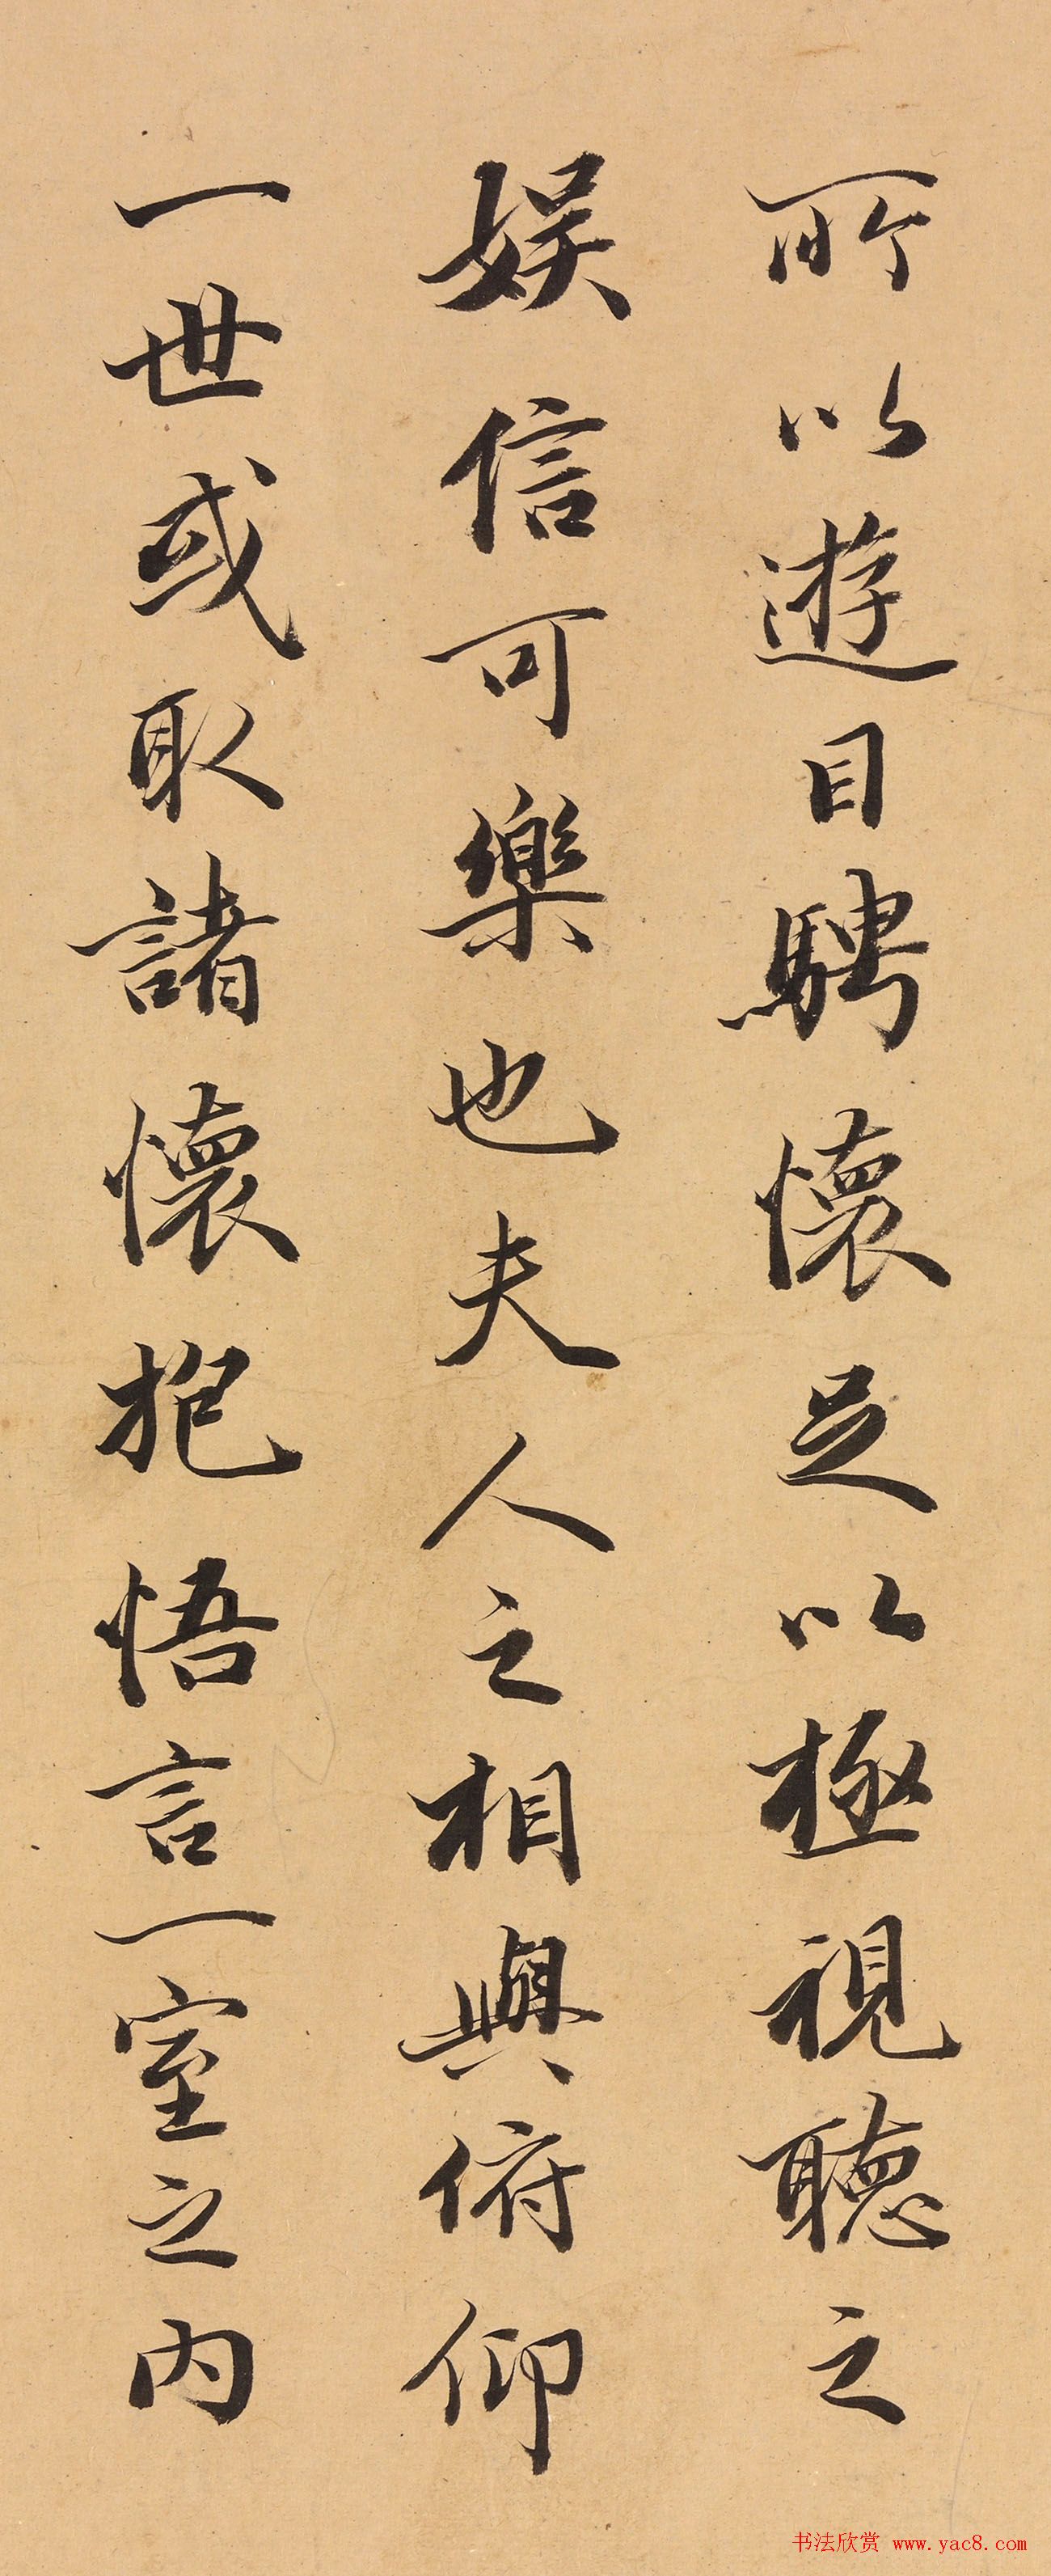 所以遊目騁懷足以極視聽之
娛信可樂也夫人之相與俯仰
一世或取諸懷抱悟言一室之內
书法欣赏 www.yac8.com